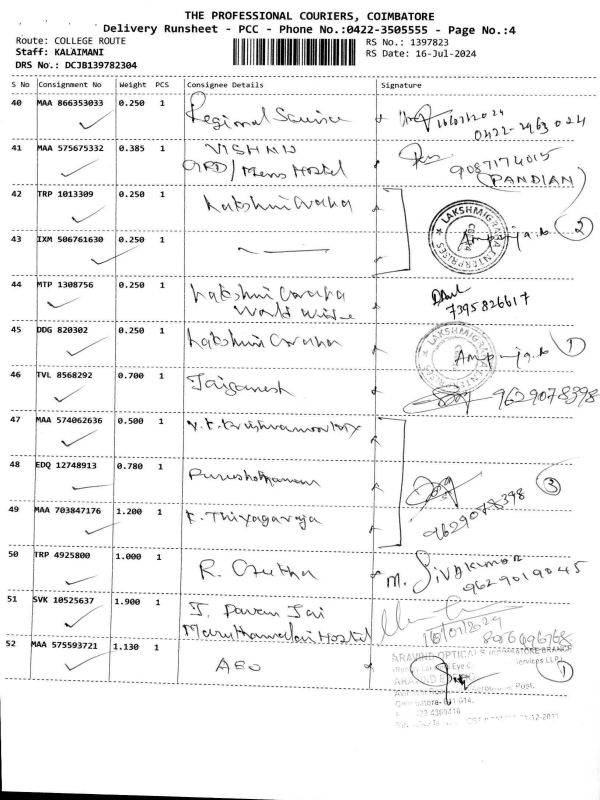 THE PROFESSIONAL COURIERS, COIMBATORE
Delivery Runsheet - PCC - Phone No.:0422-3505555 - Page No.:4
Route: COLLEGE ROUTE
RS No.: 1397823
Staff: KALAIMANI
RS Date: 16-Jul-2024
DRS No.: DCJB139782304
S No Consignment No Weight PCS Consignee Details Signature
40 MAA 866353033 0.250 1 Regional 16/07/2024
0422-2963024
41 MAA 575675332 0.385 1 VISHNU
GRD/Mens Hostel 9087174015
(PANDIAN)
42 TRP 1013309 0.250 1 Lakshmi Graha
LAKSHMIGRAHA ENTERPRISES 2
43 IXM 506761630 0.250 1
44 MTP 1308756 0.250 1 Lakshmi Graha
World Wide 7395826617
45 DDG 820302 0.250 1 Lakshmi Graha
LAKSHMIGRAHA ENTERPRISES 1
46 TVL 8568292 0.700 1 Jaiganesh 9629078398
47 MAA 574062636 0.500 1 V.K. Krishnamoorthy
48 EDQ 12748913 0.780 1 Purushothaman 3
9629078398
49 MAA 703847176 1.200 1 K. Thiyagaraja
50 TRP 4925800 1.000 1 R. M. Sivakumar
9629019045
51 SVK 10525637 1.900 1 J. Pavan Jai
Maruthamalai Hostel 16/07/2024
52 MAA 575593721 1.130 1 AEO 1
ARAVIND OPTICALS COIMBATORE BRANCH
Services LLP)
Post,